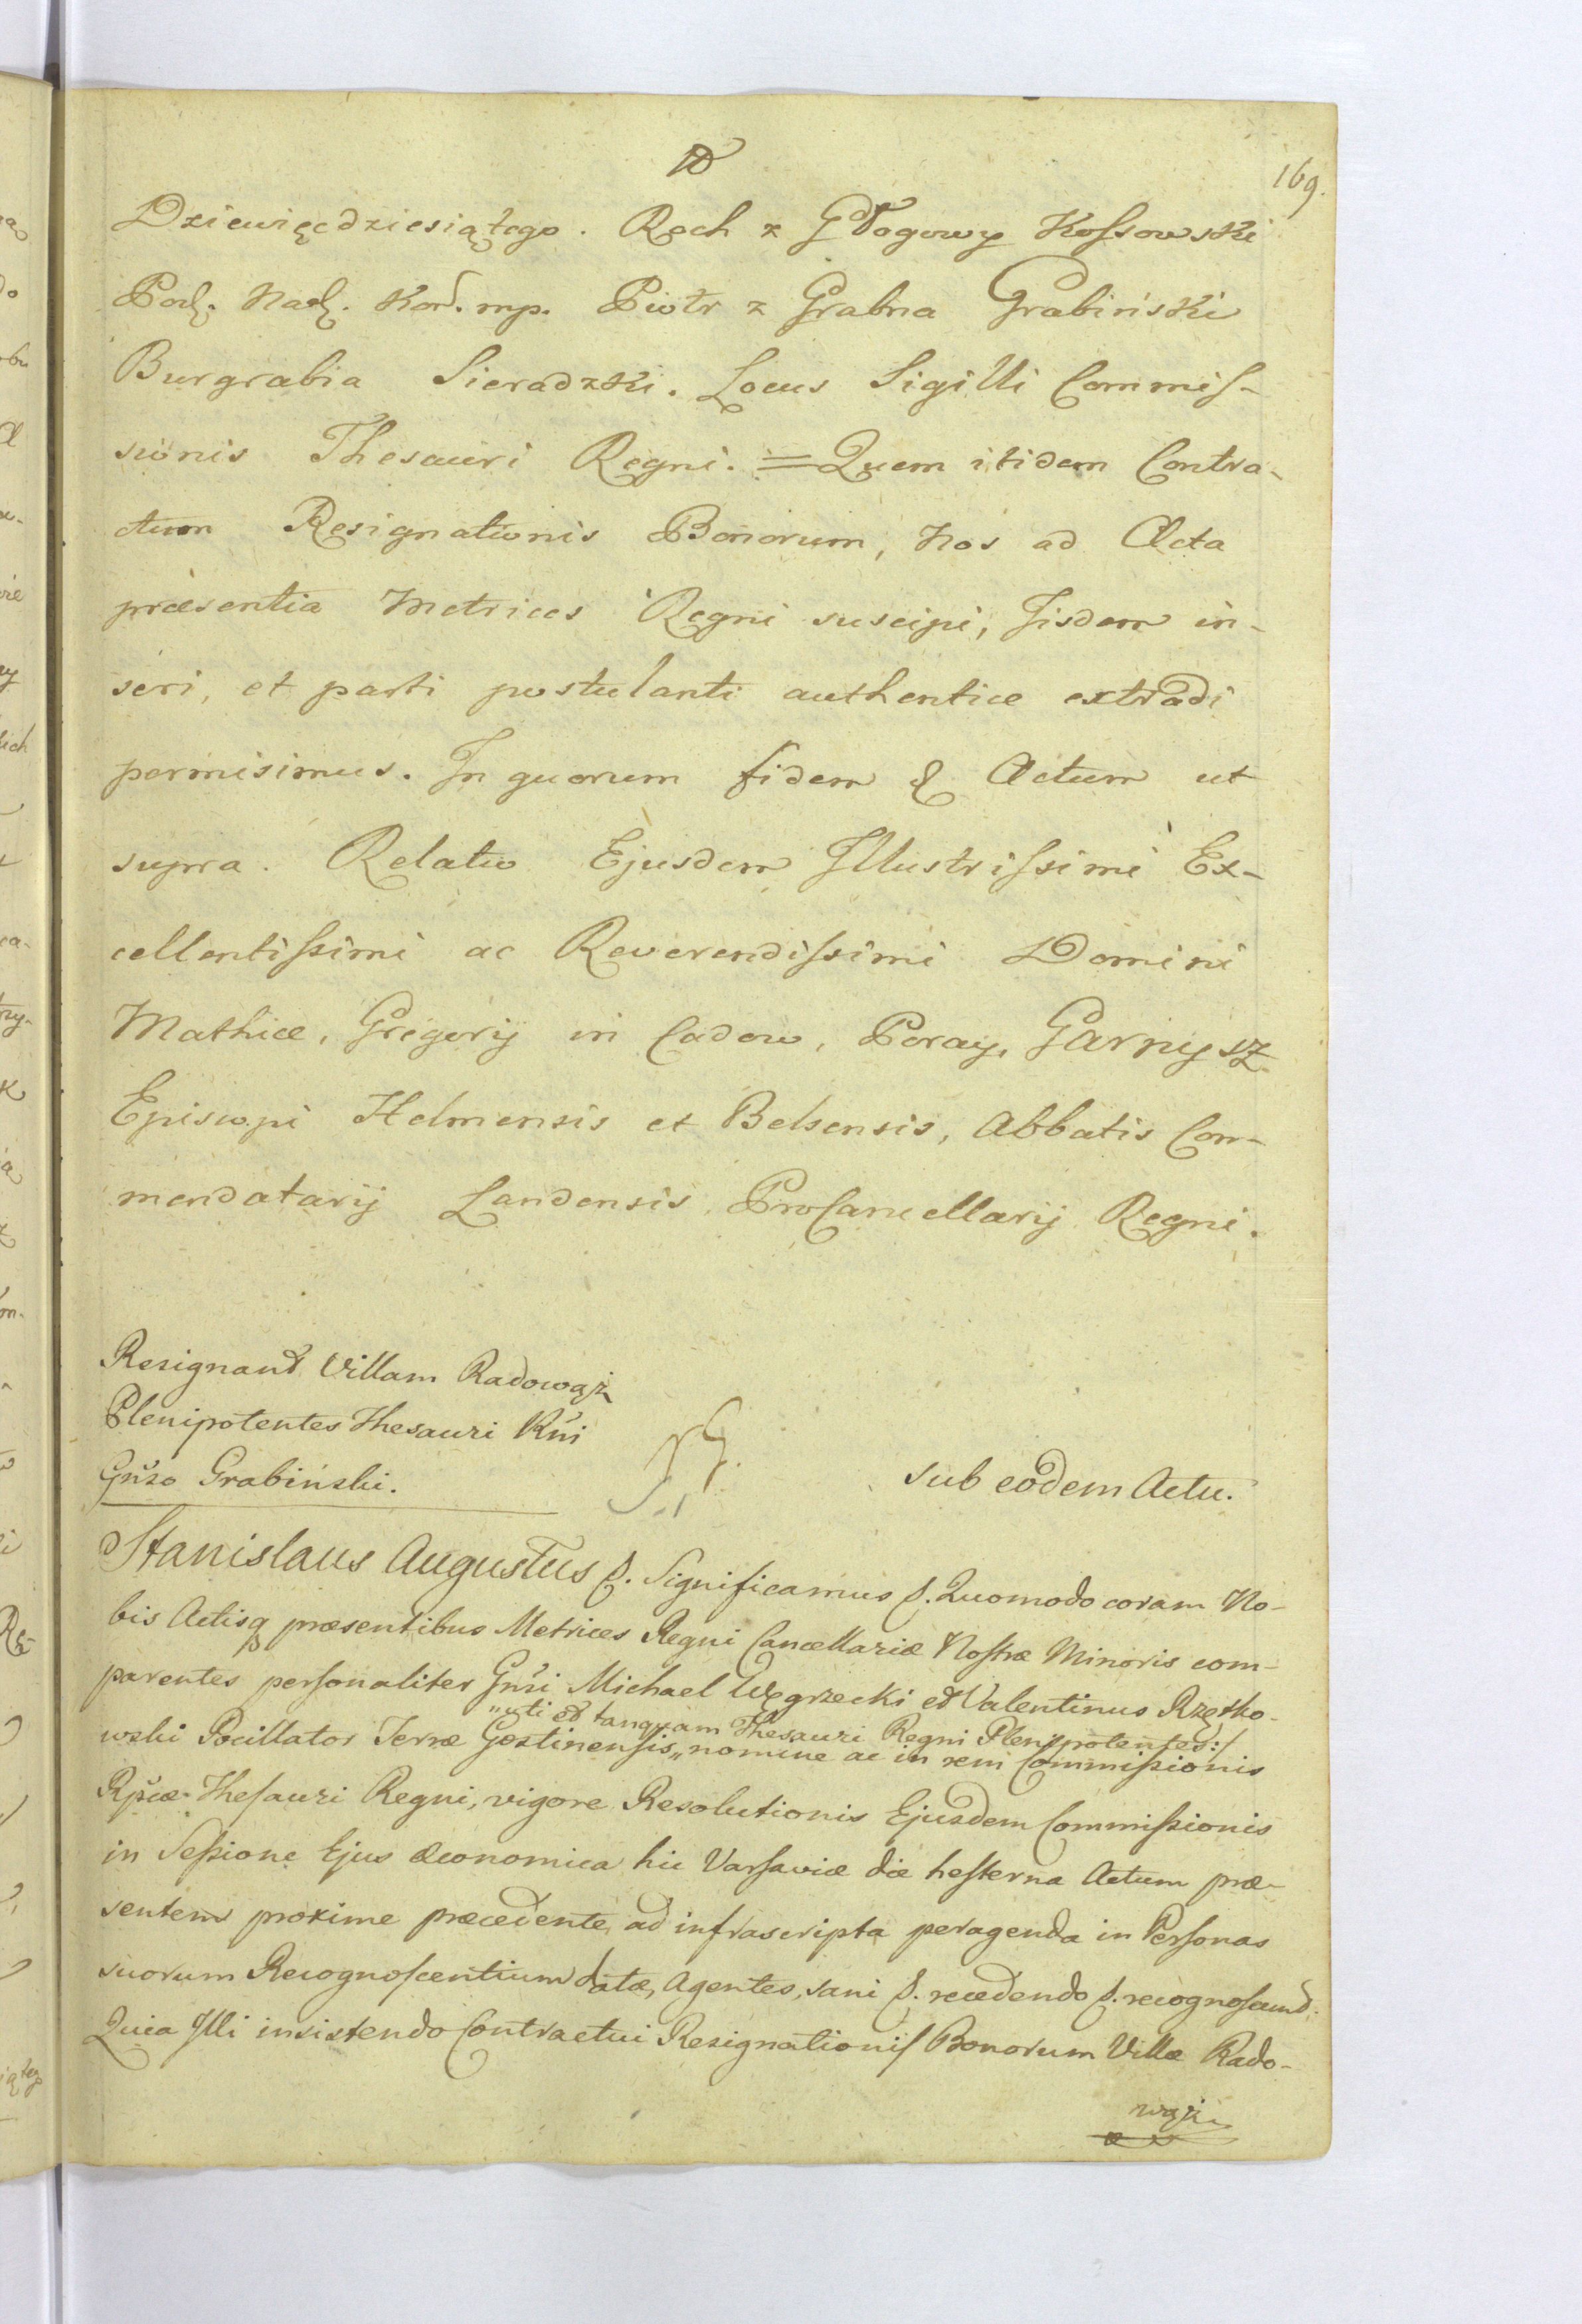 169.
Dziewięćdziesiątego. Roch z Głogowy Kossowski
Pod. Nad. Kor. mp. Piotr z Grabna Grabiński
Burgrabia Sieradzki. Locus Sigilli Commis-
sionis Thesauri Regni. = Quem itidem Contra-
ctum Resignationis Bonorum, Nos ad Acta
præsentia Metrices Regni suscipi, Iisdem in-
seri, et parti postulanti authentice extradi
permisimus. In quorum fidem & Actum ut
supra. Relatio Ejusdem Illustrissimi Ex-
cellentissimi ac Reverendissimi Domini
Mathiæ, Gregorij in Cadow, Poray, Garnysz
Episcopi Helmensis et Belsensis, Abbatis Com-
mendatarij Landensis, ProCancellarij Regni.
Resignant Villam Radowąż
Plenipotentes Thesauri Rni
Gnso Grabiński.
sub eodem Actu.
Stanislaus Augustus &. Significamus &. Quomodo coram No-
bis Actisq præsentibus Metrices Regni Cancellariæ Nostræ Minoris com-
parentes personaliter Gnsi Michael Węgrzecki et Valentinus Rzętko-
„uti et tanquam Thesauri Regni Plenipotentes:/
wski Pocillator Terræ Gostinensis„ nomine ac in rem Commissionis
Rpcæ Thesauri Regni, vigore Resolutionis Ejusdem Commissionis
in Sessione Ejus œconomica hic Varsaviæ die hesterna Actum præ-
sentem proxime præcedente, ad infrascripta peragenda in Personas
suorum Recognoscentium datæ, Agentes, sani &. recedendo &. recognoscund:
Quia Illi insistendo Contractui Resignationis Bonorum Villæ Rado-
wąża